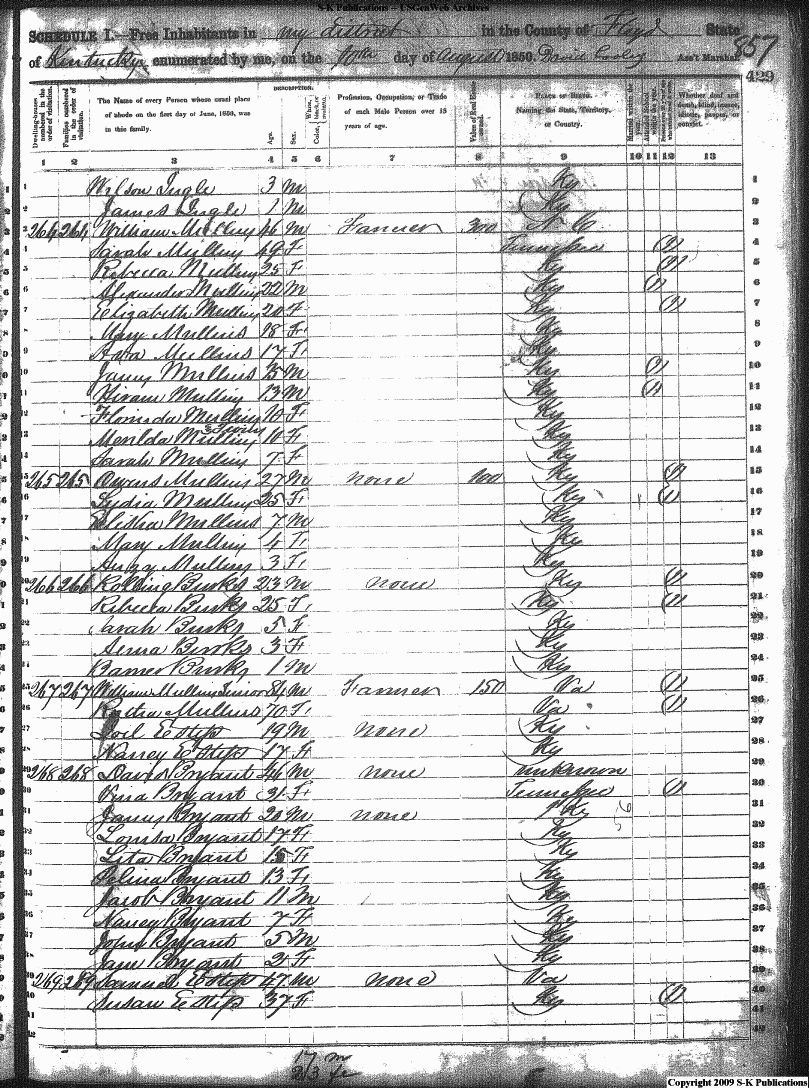 S-K Publications -- USGenWeb Archives
SCHEDULE I.—Free Inhabitants in my district in the County of Floyd State
of Kentucky enumerated by me, on the 10th day of August 1850. David Cooley Ass't Marshal 857
429
Dwelling-houses numbered in the order of visitation.
Families numbered in the order of visitation.
The Name of every Person whose usual place of abode on the first day of June, 1850, was in this family.
DESCRIPTION.
Age.
Sex.
Color, White, black, or mulatto.
Profession, Occupation, or Trade of each Male Person over 15 years of age.
Value of Real Estate owned.
PLACE OF BIRTH. Naming the State, Territory, or Country.
Married within the year.
Attended School within the year.
Whether deaf and dumb, blind, insane, idiotic, pauper, or convict.
1 2 3 4 5 6 7 8 9 10 11 12 13
1 Wilson Ingle 3 M Ky 1
2 James Ingle 1 M Ky 2
3 264 264 William Mullins 46 M Farmer 300 N C 3
4 Sarah Mullins 49 F Tennessee (1) 4
5 Rebecca Mullins 25 F Ky (1) 5
6 Alexander Mullins 22 M Ky (1) 6
7 Elizabeth Mullins 20 F Ky (1) 7
8 Mary Mullins 18 F Ky 8
9 Mullins 17 F Ky 9
10 James Mullins 15 M Ky (1) 10
11 Hiram Mullins 13 M Ky (1) 11
12 Mullins 10 F Ky 12
13 Mullins 10 F Ky 13
14 Sarah Mullins 7 F Ky 14
15 265 265 Owens Mullins 27 M none 100 Ky (1) 15
16 Lydia Mullins 25 F Ky (1) 16
17 Elisha Mullins 7 M Ky 17
18 Mary Mullins 4 F Ky 18
19 Mullins 3 F Ky 19
20 266 266 Rolling Burks 23 M none Ky (1) 20
21 Rebecca Burks 25 F Ky (1) 21
22 Sarah Burks 5 F Ky 22
23 Burks 3 F Ky 23
24 Burks 1 M Ky 24
25 267 267 William Mullins Senior 84 M Farmer 150 Va (1) 25
26 Mullins 70 F Va (1) 26
27 Joel Estep 19 M none Ky 27
28 Nancy Estep 17 F Ky 28
29 268 268 David Bryant 46 M none unknown 29
30 Bryant 31 F Tennessee (1) 30
31 James Bryant 20 M none Ky 31
32 Louisa Bryant 17 F Ky 32
33 Bryant 15 F Ky 33
34 Bryant 13 F Ky 34
35 Jacob Bryant 11 M Ky 35
36 Nancy Bryant 7 F Ky 36
37 John Bryant 5 M Ky 37
38 Jane Bryant 2 F Ky 38
39 269 269 Samuel Estep 47 M none Va 39
40 Susan Estep 37 F Ky (1) 40
41 41
42 42
17 m
23 fe
Copyright 2009 S-K Publications